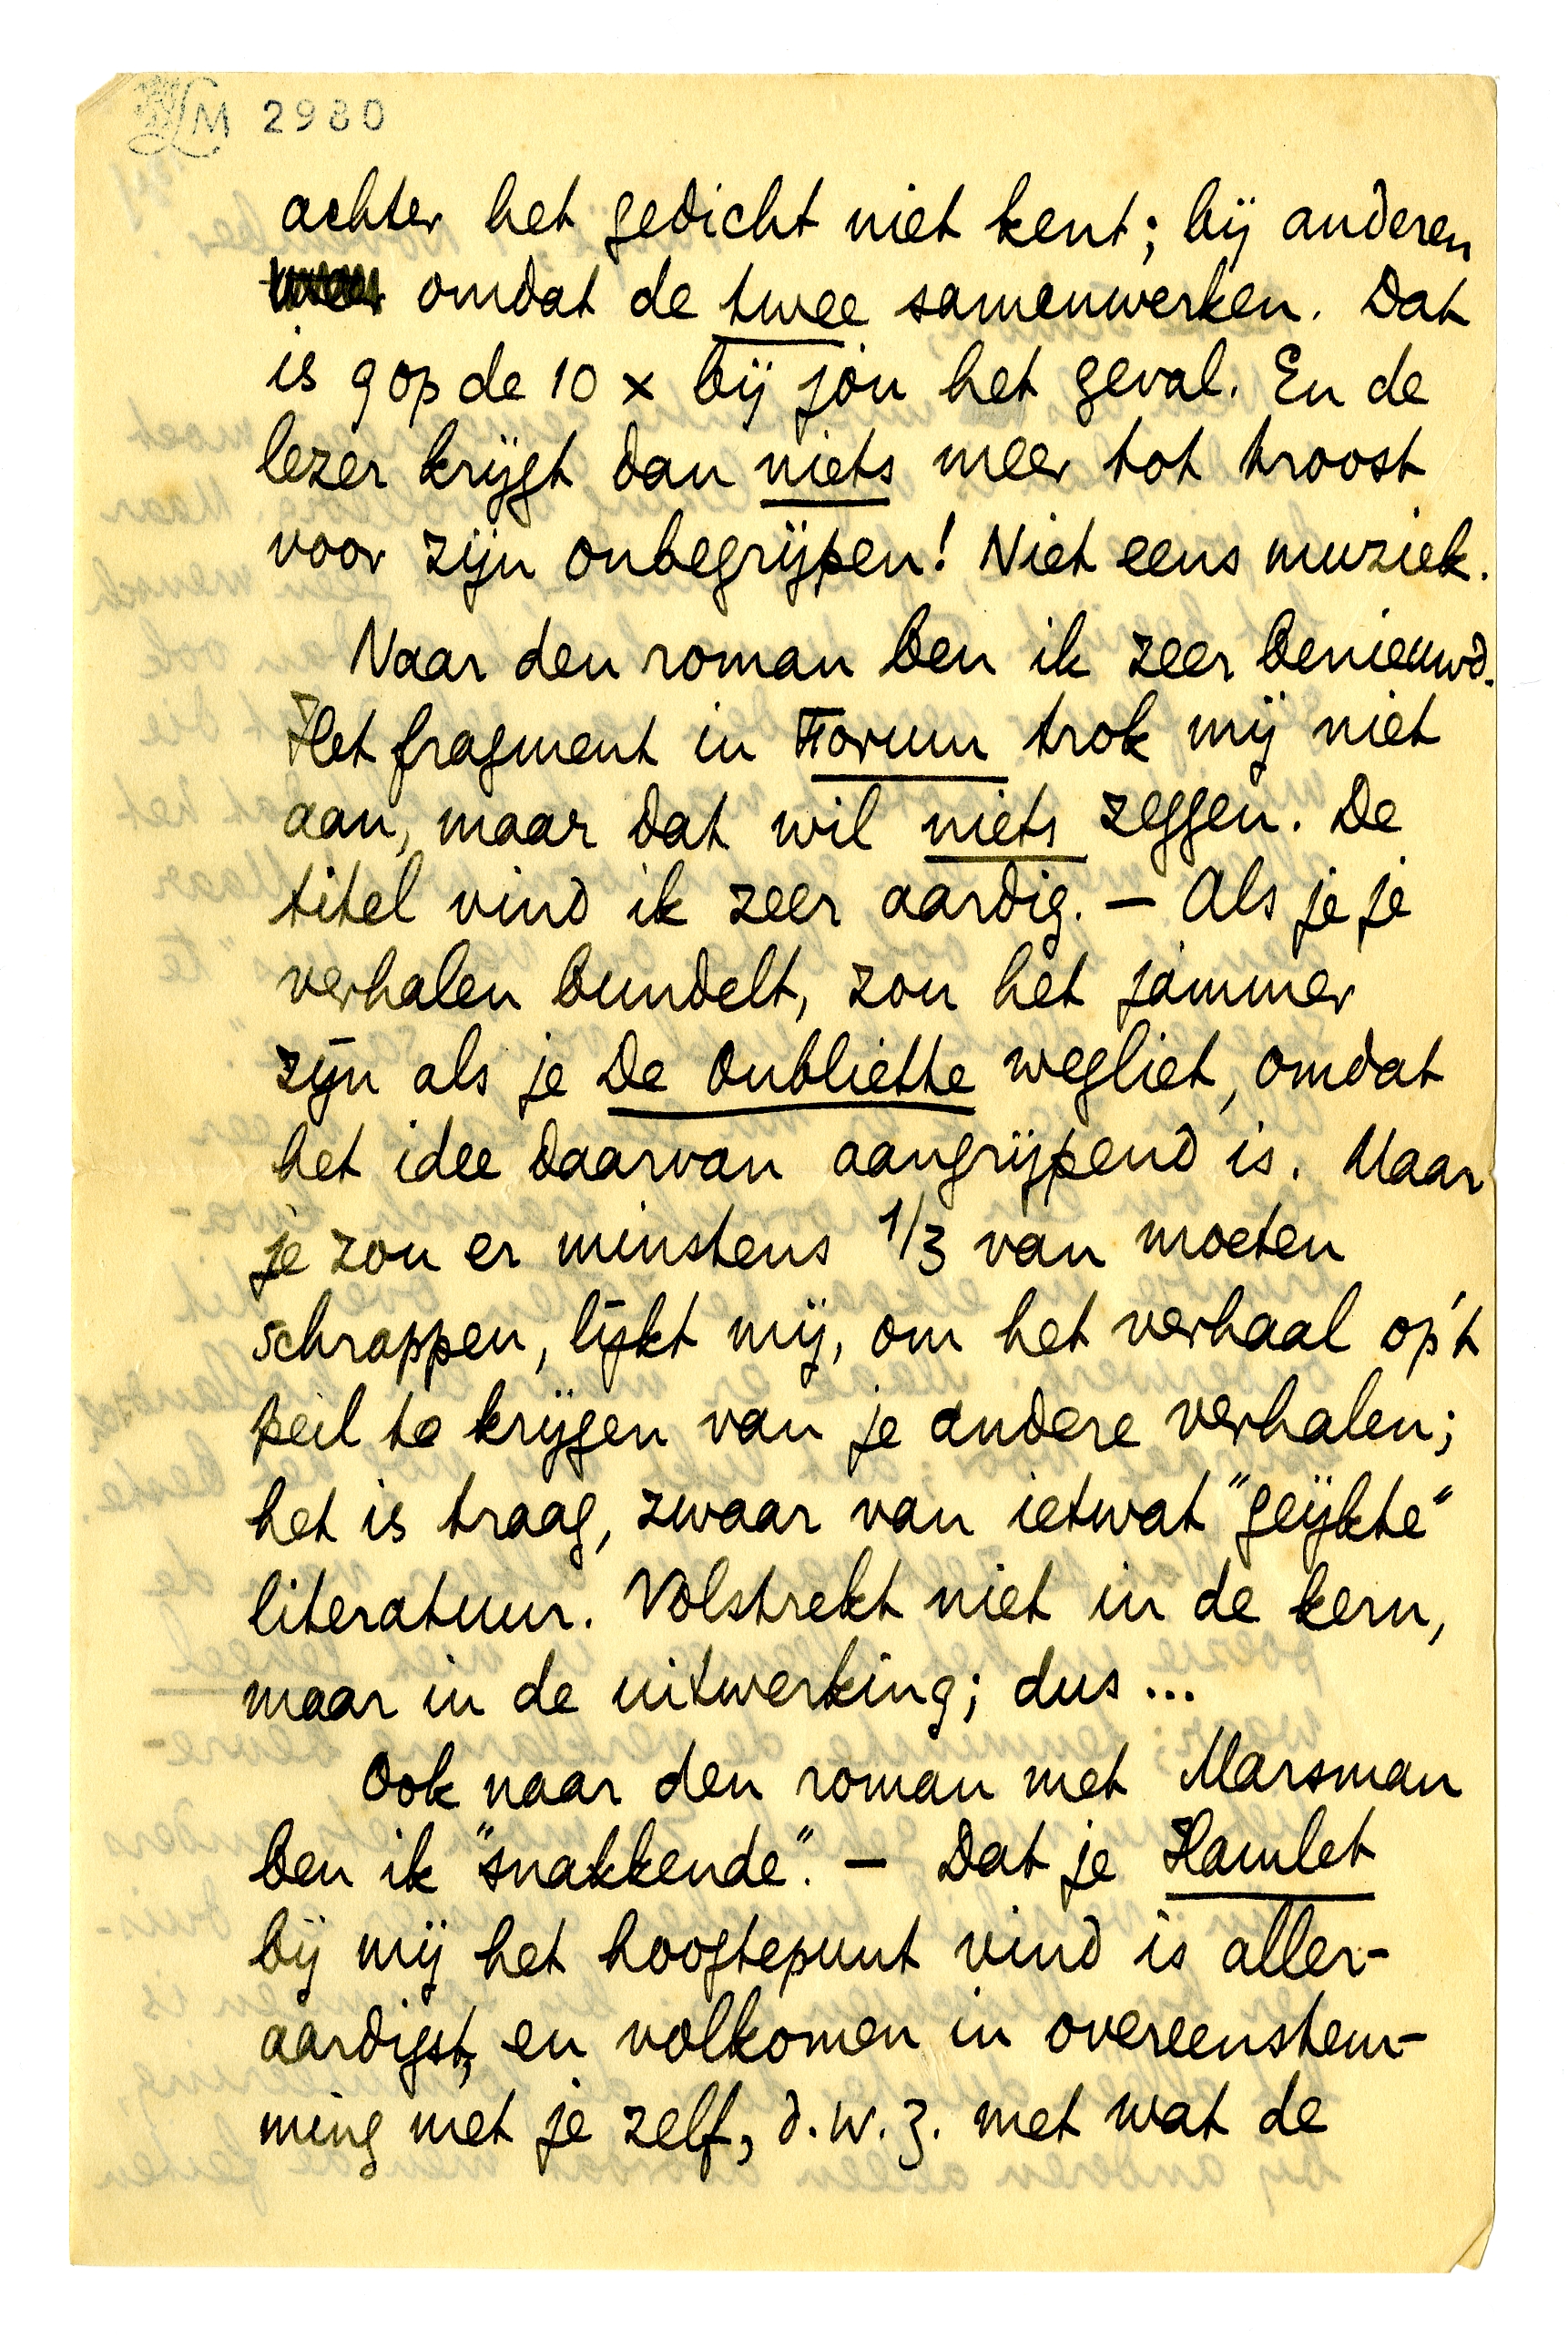 LM 2980
achter het gedicht niet kent; bij anderen
omdat de twee samenwerken. Dat
is 9 op de 10 x bij jòu het geval. En de
lezer krijgt dan niets meer tot troost
voor zijn onbegrijpen! Niet eens muziek.
Naar den roman ben ik zeer benieuwd.
Het fragment in Forum trok mij niet
aan, maar dat wil niets zeggen. De
titel vind ik zeer aardig. — Als je je
verhalen bundelt, zou het jammer
zijn als je De Oubliette wegliet, omdat
het idee daarvan aangrijpend is. Maar
je zou er minstens 1/3 van moeten
schrappen, lijkt mij, om het verhaal op 't
peil te krijgen van je andere verhalen;
het is traag, zwaar van ietwat "geijkte"
literatuur. Volstrekt niet in de kern,
maar in de uitwerking; dus ...
Ook naar den roman met Marsman
ben ik "snakkende". — Dat je Hamlet
bij mij het hoogtepunt vind is aller-
aardigst, en volkomen in overeenstem-
ming met je zelf, d.w.z. met wat de